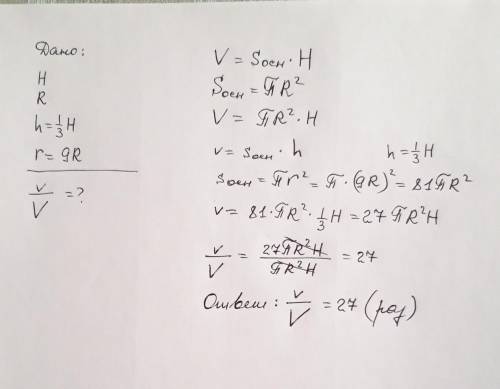 Дано:
H
R
h = 1/3 H
r = 9R
v/V = ?
V = Sосн · H
Sосн = ПR²
V = ПR² · H
v = sосн · h h = 1/3 H
sосн = Пr² = П · (9R)² = 81ПR²
v = 81 · ПR² · 1/3 H = 27 ПR²H
v/V = 27ПR²H/ПR²H = 27
Ответ: v/V = 27 (раз)